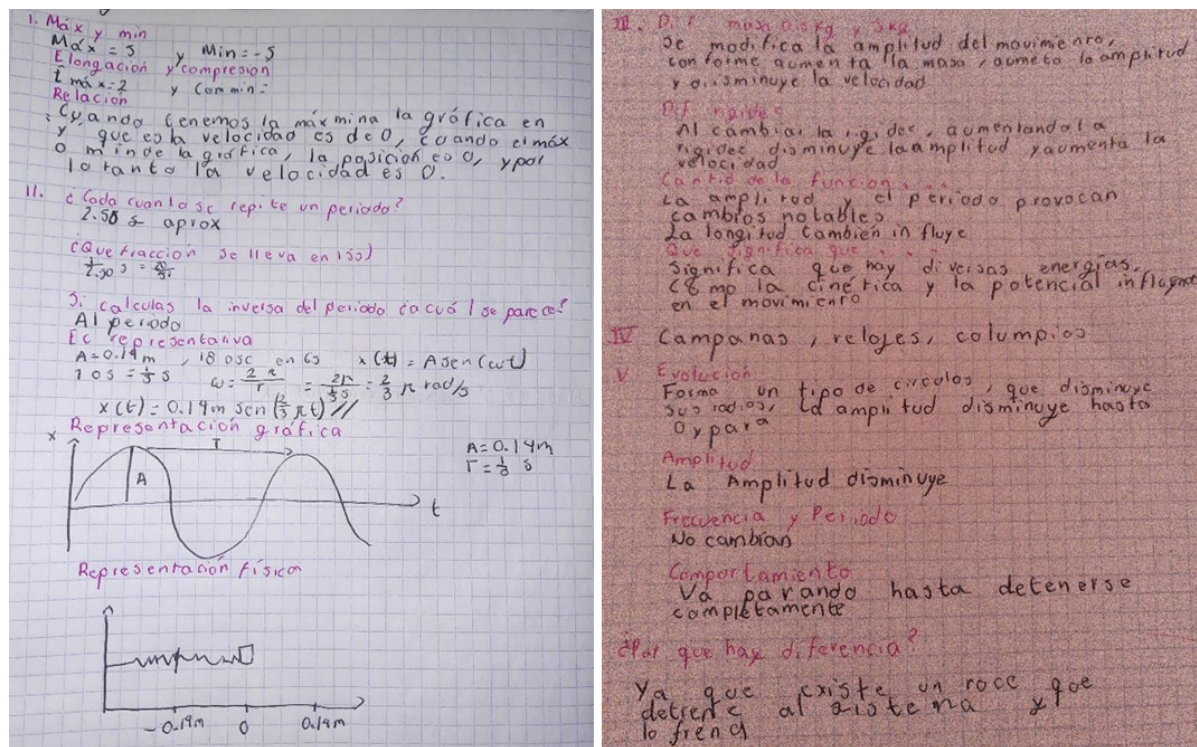 I. Máx y min
Máx = 5 y Min = -5
Elongación y compresión
t máx = 2 y com min =
Relación
Cuando tenemos la máxmina la gráfica en
y, que es la velocidad es de 0, cuando el máx
o min de la gráfica, la posición es 0, y por
lo tanto la velocidad es 0.
II. ¿Cada cuanto se repite un periodo?
2.50 s aprox
¿Que fracción se lleva en 1s?
Si calculas la inversa del periodo ¿a cuál se parece?
Al periodo
Ec representativa
A = 0.14 m, 18 osc en 6s x(t) = A sen(ωt)
1 os = 1/3 s ω = 2π/T = 2π/(1/3 s) = 2/3 π rad/s
x(t) = 0.14m sen(2/3 πt) //
Representación gráfica
x T A = 0.14m
A T = 1/3 s
t
Representación física
-0.14m 0 0.14m
III. Dif masa 0.5kg y 3kg
Se modifica la amplitud del movimiento,
conforme aumenta la masa, aumeta la amplitud
y disminuye la velocidad
Dif rigidec
Al cambiar la rigidec, aumentando la
rigidec disminuye la amplitud y aumenta la
velocidad
Cantid de la función....
La amplitud y el periodo provocan
cambios notables
La longitud tambien influye
Que significa que...
Significa que hay diversas energías,
como la cinética y la potencial influyente
en el movimiento
IV Campanas, relojes, columpios
V Evolución
Forma un tipo de circulos, que disminuye
sus radios, la amplitud disminuye hasta
0 y para
Amplitud
La Amplitud disminuye
Frecuencia y Periodo
No cambian
Comportamiento
Va parando hasta detenerse
completamente
¿Por que hay diferencia?
Ya que existe un roce que
detiene al sistema y
lo frena